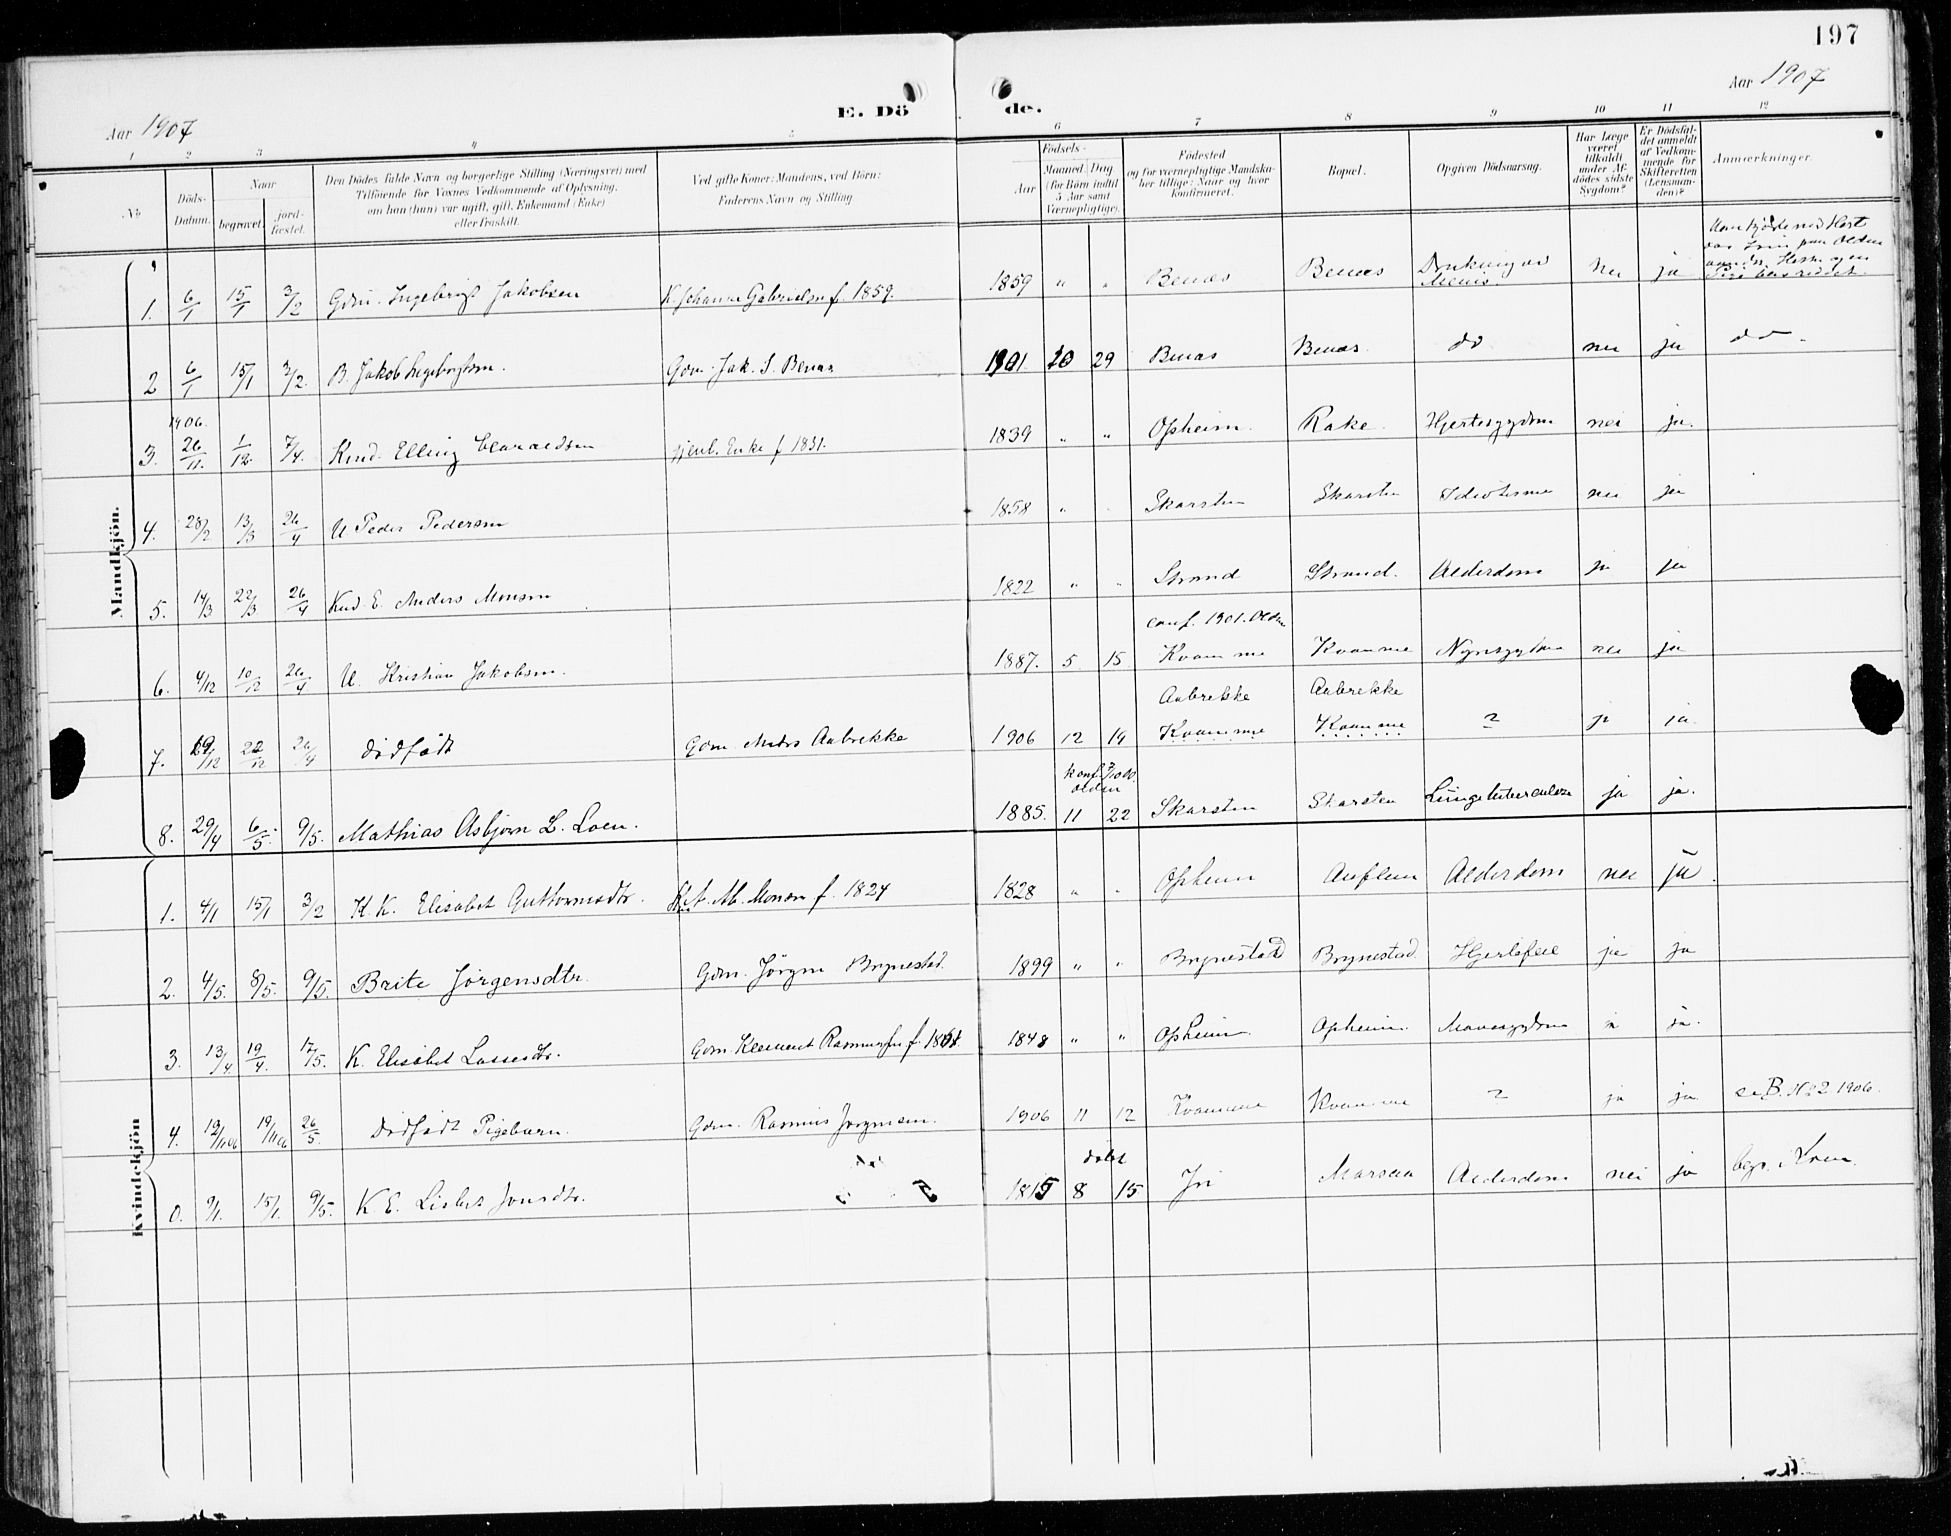 197
Aar 1907
E. Döde.
Aar 1907
1 2 3 4 5 6 7 8 9 10 11 12
No
Döds-Datum.
Naar
begravet.
jord-fæstet.
Den Dödes fulde Navn og borgerlige Stilling (Næringsvei) med
Tilföiende for Voxnes Vedkommende af Oplysning,
om han (hun) var ugift, gift, Enkemand (Enke)
eller fraskilt.
Ved gifte Koner: Mandens, ved Börn:
Faderens Navn og Stilling.
Födsels-
Aar
Maaned. Dag
(for Börn indtil
5 Aar samt
Værnepligtige).
Födested
og for værnepligtige Mandsku-
ber tillige: Naar og hvor
konfirmeret.
Bopæl.
Opgiven Dödsaarsag.
Har Læge
været
tilkaldt
under Af-
dödes sidste
Sygdom?
Er Dödsfal-
det anmeldt
af Vedkom-
mende for
Skifteretten
(Lensman-
den)?
Anmærkninger.
Mandkjön.
1. 6/1 15/1 3/2 Gdm. Ingebrigt Jakobsen K. Johanne Gabrielsen f. 1859. 1859 " " Benæs Benæs nei ja
2 6/1 15/1 3/2. B. Jakob Ingebrigtsen. Gdm. Jak. I. Benæs 1901 10 29 Benæs Benæs. do nei ja do.
1906.
3. 26/11. 1/12. 7/4. Kmd. Elling 1831. 1839 " " Opheim. Rake. Hjertesygdom nei ja.
4. 28/2 13/3 26/4 U Peder Pedersen 1858 " Skarsten Skarsten Idiotisme nei ja
5. 14/3 22/3 26/4 Kmd. E. Anders Monsen 1822 " " Strand Strand. Alderdom ja ja
conf. 1901. Olden
6. 4/12 10/12 26/4 U. Kristian Jakobsen. 1887. 5. 15 Kvamme Kvamme Nyresygdom nei ja
Aabrekke Aabrekke
7. 19/12 22/12 26/4 dödfödt Gdm. Anders Aabrekke 1906 12 19 Kvamme Kvamme ? ja ja.
konf. Olden
8. 29/4 6/5. 9/5. Mathias Asbjörn L. Loen. 1885. 11 22 Skarsten Skarsten Lungetuberculose ja ja.
Kvindekjön
1. 4/1 15/1 3/2 K. K. Elisabet Guttormsdtr. Monsen f. 1824 1828 " " Opheim Auflem Alderdom nei ja.
2. 4/5. 8/5. 9/5. Brite Jörgensdtr. Gdm. Jörgen Brynestad. 1899 " " Brynestad Brynestad. Hjertefeil ja ja
3. 13/4 19/4. 17/5. K. Elisabet Lassesdtr. Gdm. Klement Rasmussen f. 1848 " " Opheim Opheim. Mavesygdom ja ja.
4. 12/11 06 19/11 06 26/5. Dödfödt Pigebarn. Gdm. Rasmus Jörgensen. 1906 11 12 Kvamme Kvamme ? ja ja se B. No 2 1906.
döbt
0. 9/1. 15/1. 9/5. K. E. Lisbet Jonsdtr. 1815 8 15 Jri Marsaa Alderdom nei ja begr. i Loen.